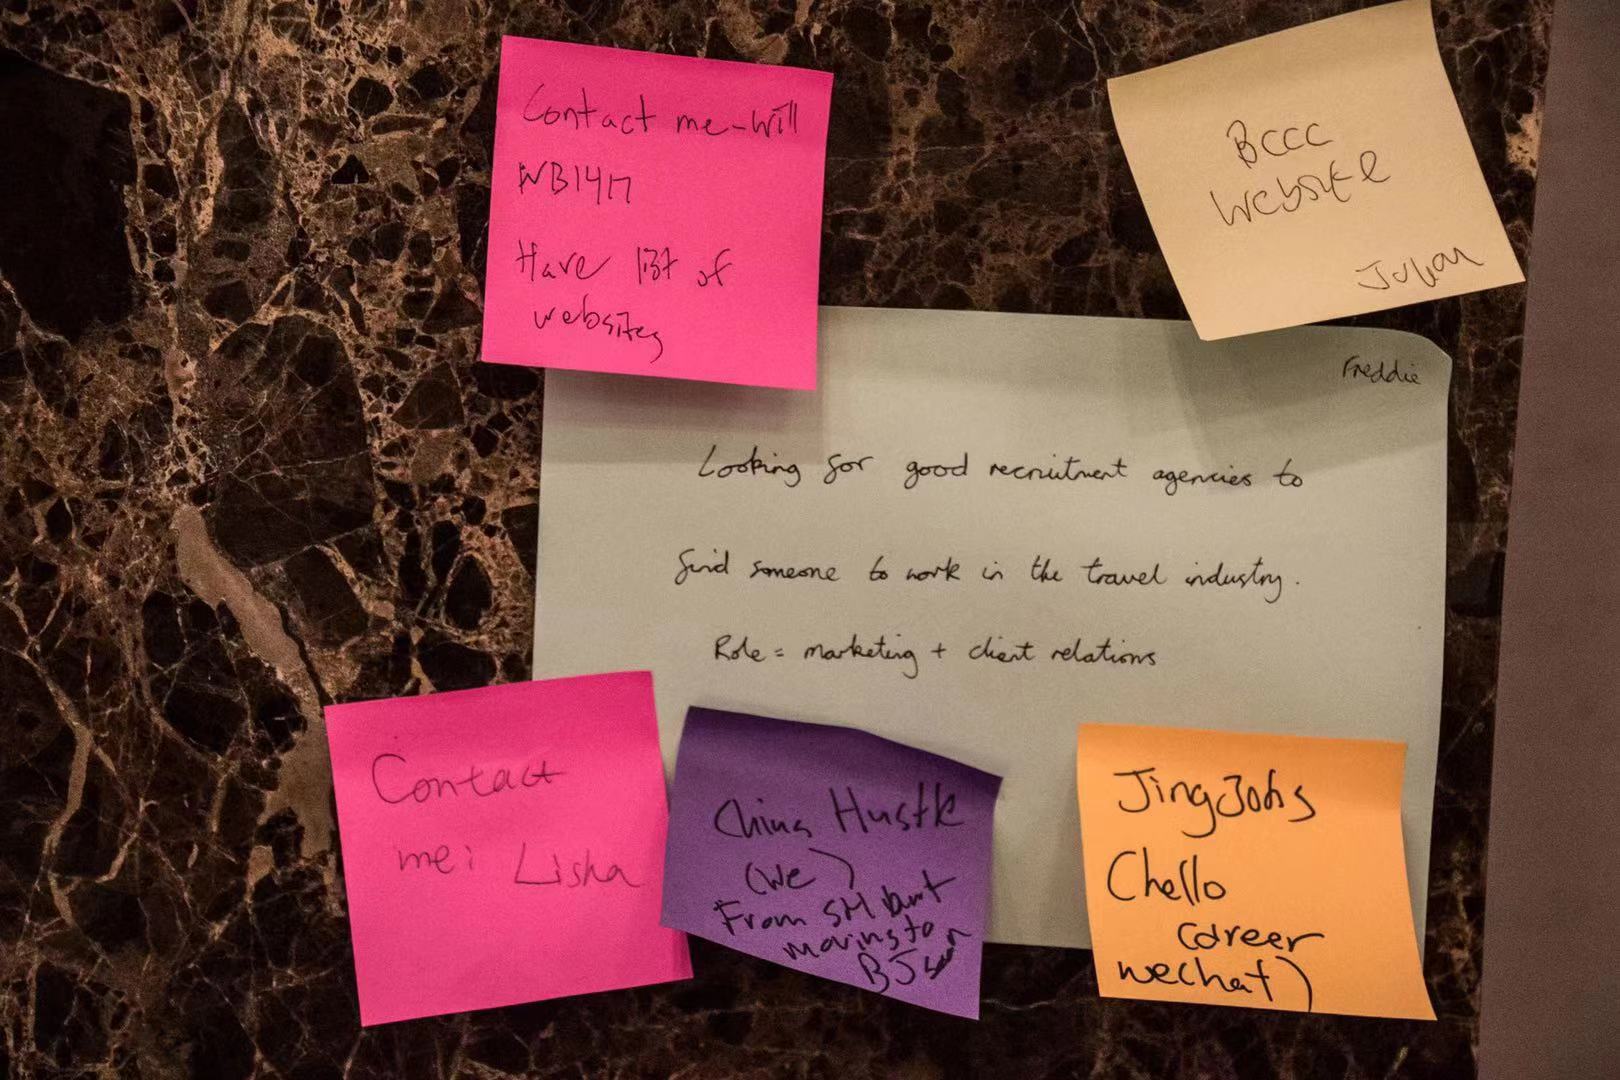 Contact me-Will
WB1417
Have list of
websites
BCCC
Website
Julian
Freddie
Looking for good recruitment agencies to
find someone to work in the travel industry.
Role = marketing + client relations
Contact
me: Lisha
China Hustle
(We )
From SH but
moving to
BJ soon
JingJobs
Chello
career
wechat)